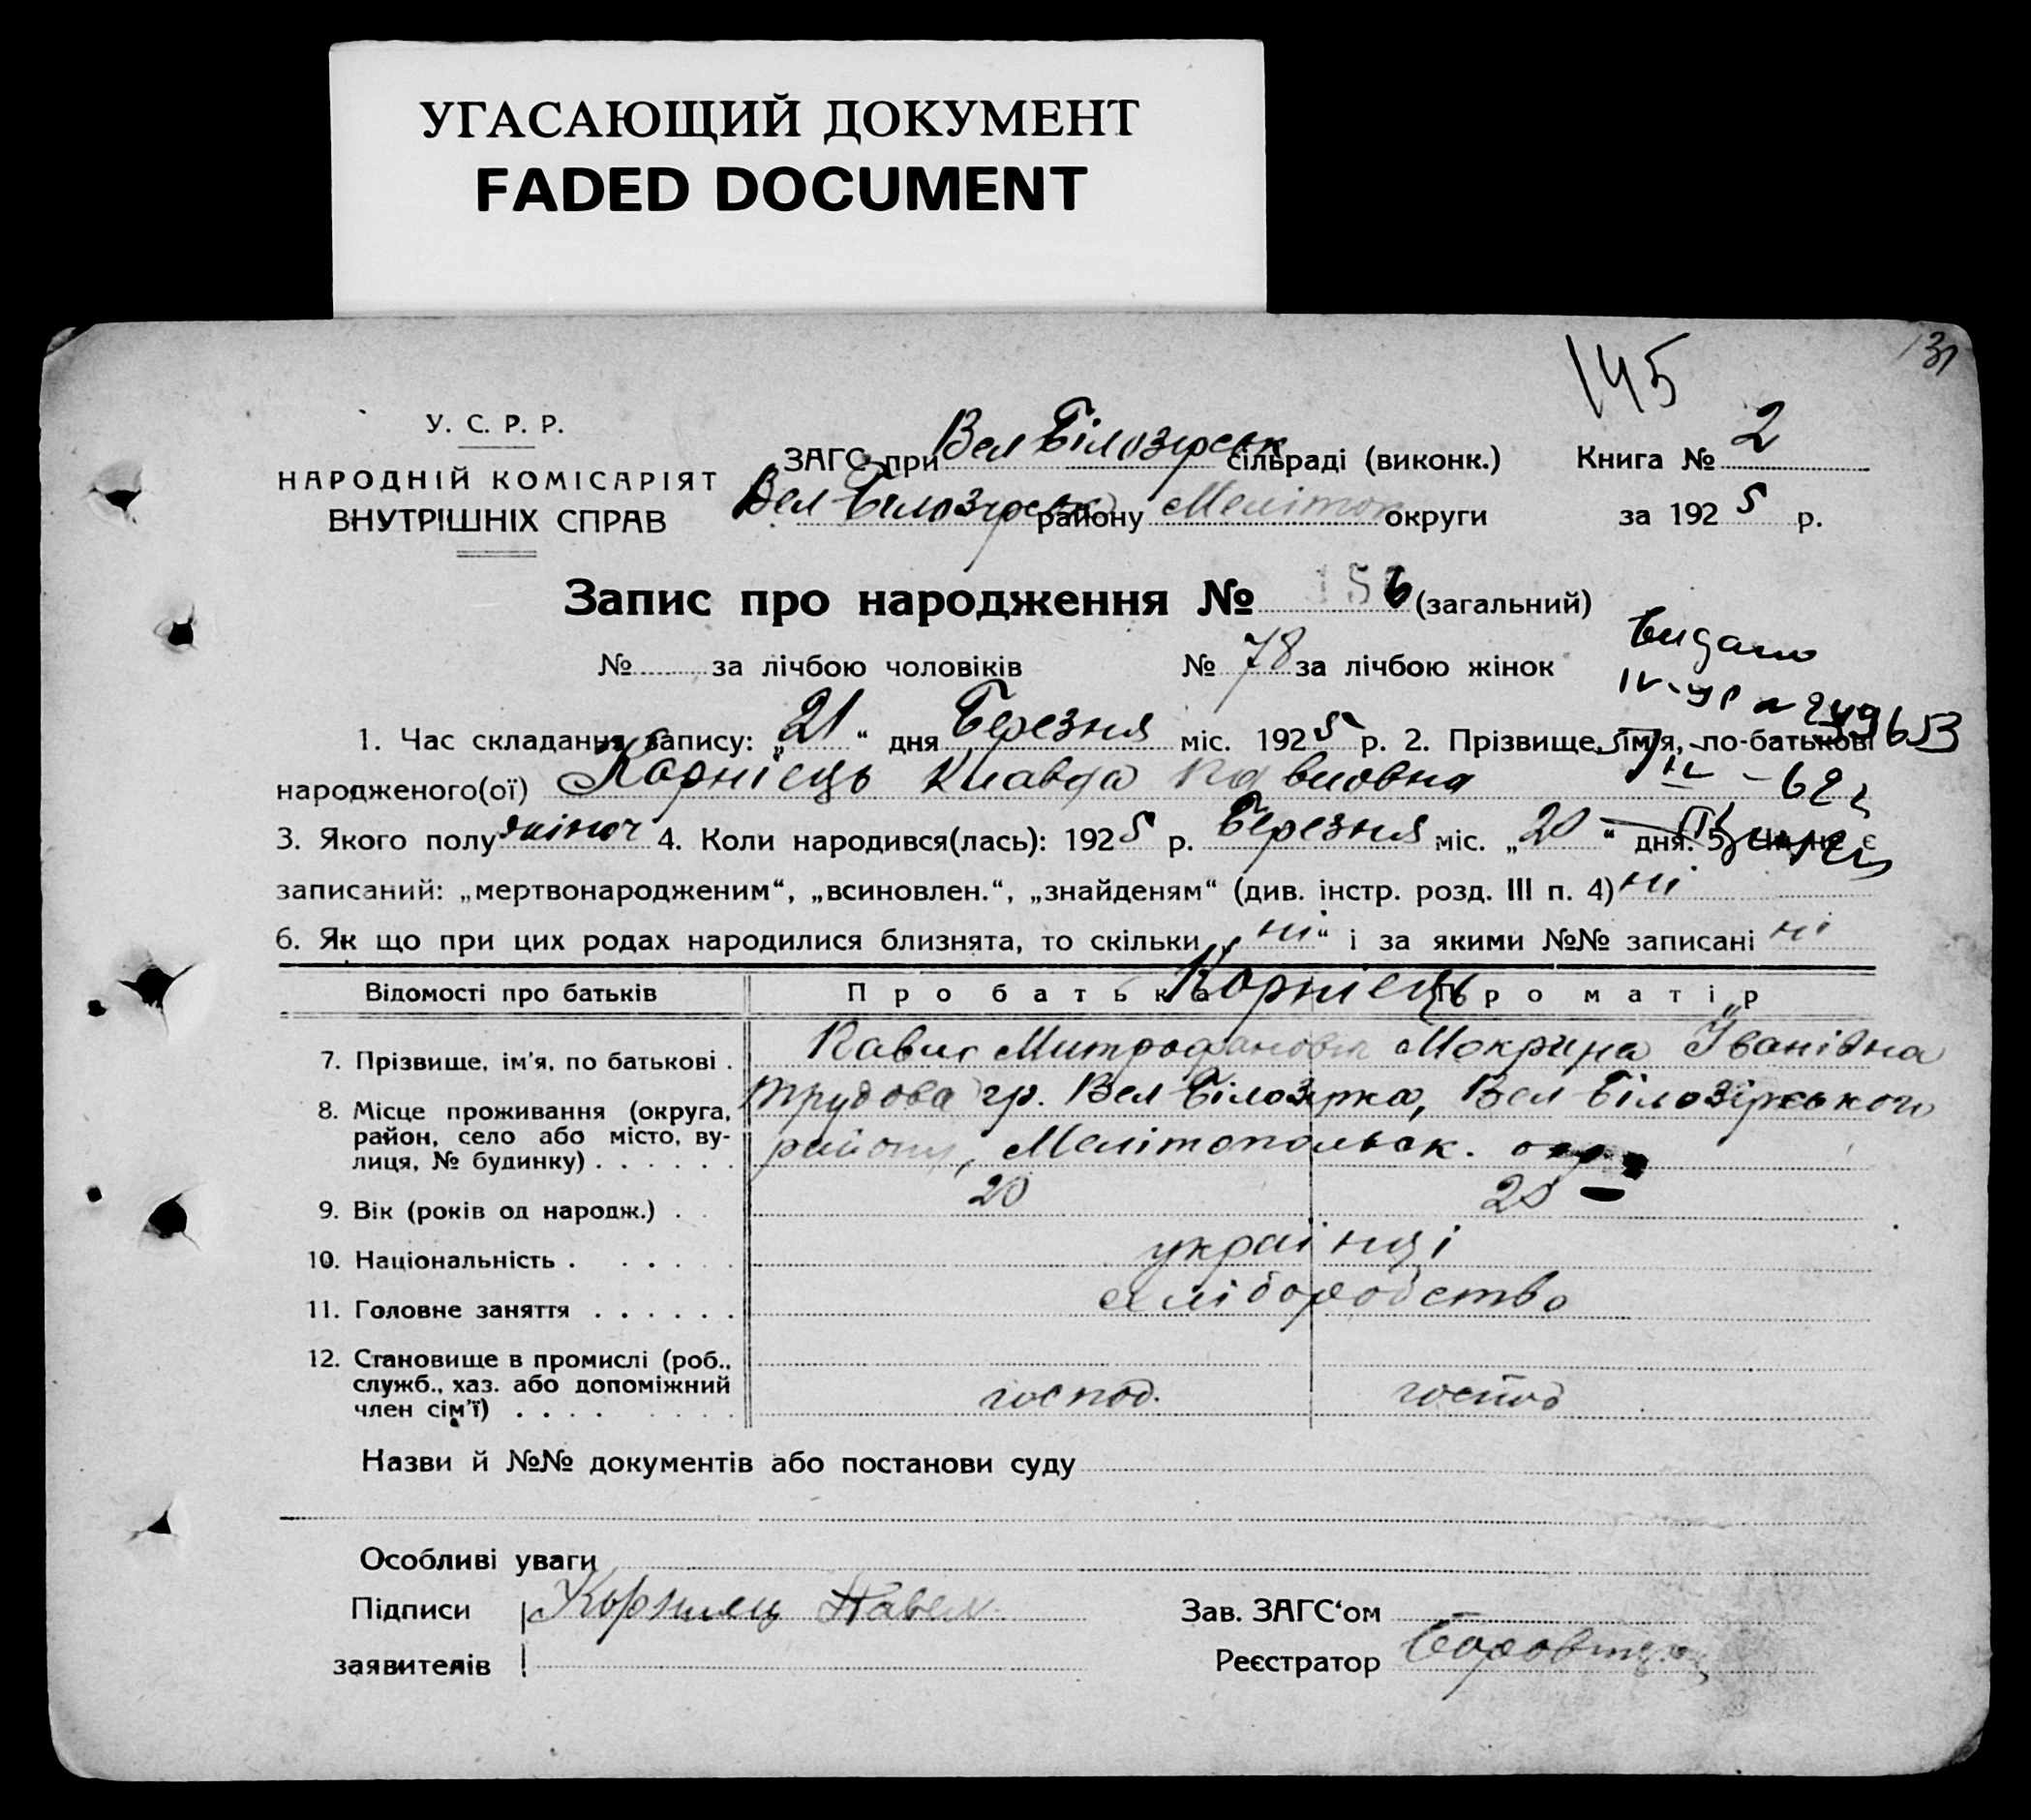 УГАСАЮЩИЙ ДОКУМЕНТ
FADED DOCUMENT
145
131
У. С. Р. Р.
НАРОДНІЙ КОМІСАРІЯТ
ВНУТРІШНІХ СПРАВ
ЗАГС при Вел Білозірськ сільраді (виконк.)
Книга № 2
Вел Білозірськ району Мелітоп округи
за 1925 р.
Запис про народження № 156 (загальний)
№ за лічбою чоловіків
№ 78 за лічбою жінок
видано
1. Час складання запису: „21“ дня Березня міс. 1925 р. 2. Прізвище, ім'я, по-батькові
народженого(ої) Корнієць Клавда Павловна
3. Якого полу жіноч 4. Коли народився(лась): 1925 р. Березня міс. „20“ дня. 5. Чи не є
записаний: „мертвонародженим“, „всиновлен.“, „знайденям“ (див. інстр. розд. III п. 4) ні
6. Як що при цих родах народилися близнята, то скільки „ні“ і за якими №№ записані ні
Відомості про батьків
Про батька
Про матір
Корнієць
7. Прізвище, ім'я, по батькові .
Павло Митрофанович
Мокрина Іванівна
8. Місце проживання (округа,
район, село або місто, ву-
лиця, № будинку) . . . . . .
Трудова гр. Вел Білозірка, Вел Білозірського
району, Мелітопольськ. окр.
9. Вік (років од народж.) . .
20
20
10. Національність . . . . . .
українці
11. Головне заняття . . . . . .
хліборобство
12. Становище в промислі (роб.,
служб., хаз. або допоміжний
член сім'ї) . . . . . . . .
господ.
господ
Назви й №№ документів або постанови суду
Особливі уваги
Підписи
заявителів
Корниец Павел
Зав. ЗАГС'ом
Реєстратор